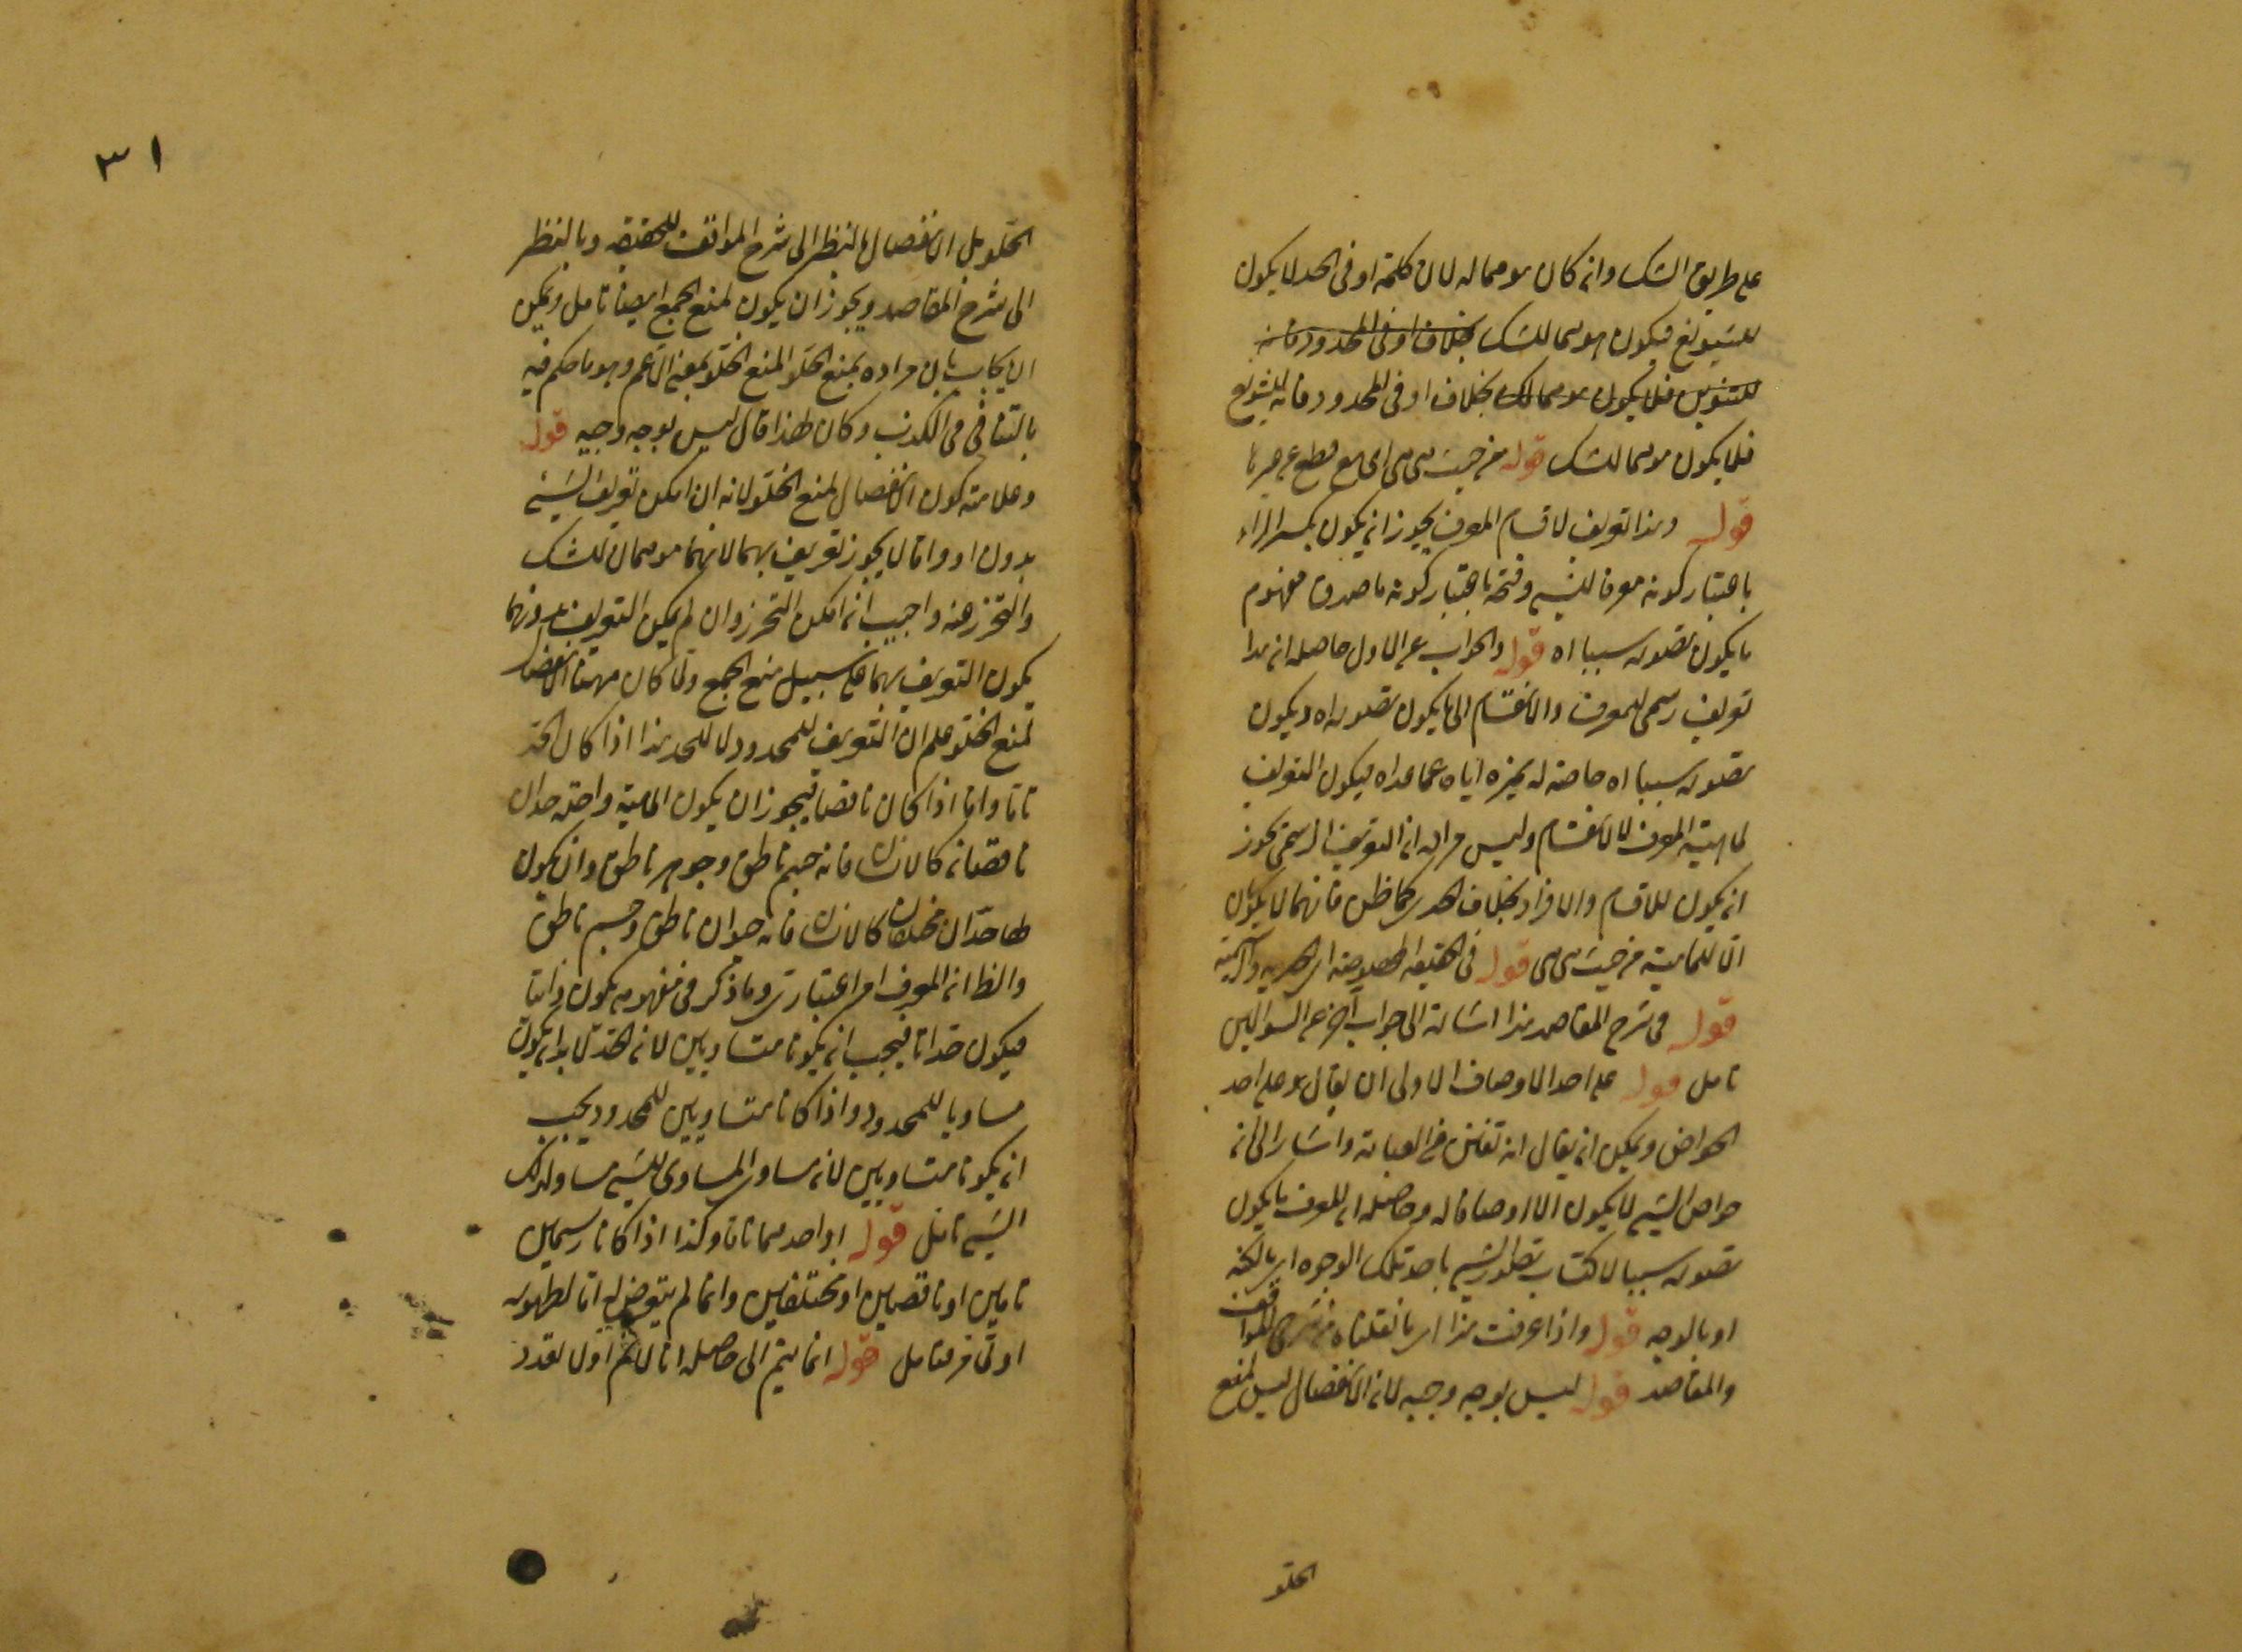 على طريق الشك وانه كان موهما له لان كلمة او فى الحد لا يكون
للتنويع فيكون موهما للشك بخلاف او فى المحدود فانه
للتنويع فلا يكون موهما للشك بخلاف او فى المحدود فانه للتنويع
فلا يكون موهما للشك قوله من حيث هى هى اى مع قطع عن غيرها
قوله وهذا تعريف لاقسام المعرف يجوز ان يكون بكسر الراء
باعتبار كونه معرفا للشئ وفتحه باعتبار كونه ما صدق مفهوم
ما يكون تصوره سببا اه قوله والجواب عن الاول حاصله ان هذا
تعريف رسمى للمعرف والانقسام الى ما يكون تصوره اه ويكون
تصوره سببا اه خاصة له يميزه اياه عما عداه فيكون التعريف
لماهية المعرف لا لانقسام وليس مراده ان التعريف الرسمى يجوز
ان يكون للاقسام والافراد بخلاف الحدى كما ظن فانهما لا يكونان
الا للماهية من حيث هى هى قوله فى الحقيقة
قوله فى شرح المقاصد هذا اشارة الى جواب آخر عن السؤالين
تامل قوله على احد الاوصاف الاولى ان يقال هو على احد
الخواص ويمكن ان يقال انه تفنن فى العبارة واشار الى ان
خواص الشئ لا يكون الا اوصافا له وحاصله ان المعرف ما يكون
تصوره سببا لاكتساب تصور الشئ باحد تلك الوجوه اى بالكنه
او بالوجه قوله واذا عرفت هذا اى ما نقلناه من شرحى المواقف
والمقاصد قوله ليس بوجه وجيه لان الانفصال ليس لمنع
الخلو
٣١
الخلو بل الانفصال بالنظر الى شرح المواقف للحقيقة وبالنظر
الى شرح المقاصد ويجوز ان يكون لمنع الجمع ايضا تامل ويمكن
ان يجاب بان مراده بمنع الخلو المنع الخلو بمعنى الاعم وهو ما حكم فيه
بالتنافى فى الكذب وكان لهذا قال ليس بوجه وجيه قوله
وعلامة كون الانفصال لمنع الخلو لانه ان امكن تعريف الشئ
بدون او واما لا يجوز تعريف بهما لانهما موهمان للشك
والتحرز عنه واجب ان امكن التحرز وان لم يمكن التعريف بدونهما
يكون التعريف بهما على سبيل منع الجمع ولما كان مهنا الانفصال
لمنع الخلو علم ان التعريف للمحدود لا للحد هذا اذا كان الحد
تاما واما اذا كان ناقصا فيجوز ان يكون لماهية واحدة حدان
ناقصان كالانسان فانه جسم ناطق وجوهر ناطق وان يكون
لها حدان مختلفان كالانسان فانه حيوان ناطق وجسم ناطق
والظ ان المعرف امر اعتبارى وما ذكر فى مفهومه يكون ذاتيا
فيكون حدا تاما فيجب ان يكونا متساويين لان الحد لا بد ان يكون
مساويا للمحدود واذا كانا متساويين للمحدود يجب
ان يكونا متساويين لان مساوى المساوى للشئ مساو لذلك
الشئ تامل قوله او احدهما تاما وكذا اذا كانا رسمين
تامين او ناقصين او مختلفين وانما لم يتعرض له اما لظهوره
قوله انما يتم الى حاصله انا لا نم اول